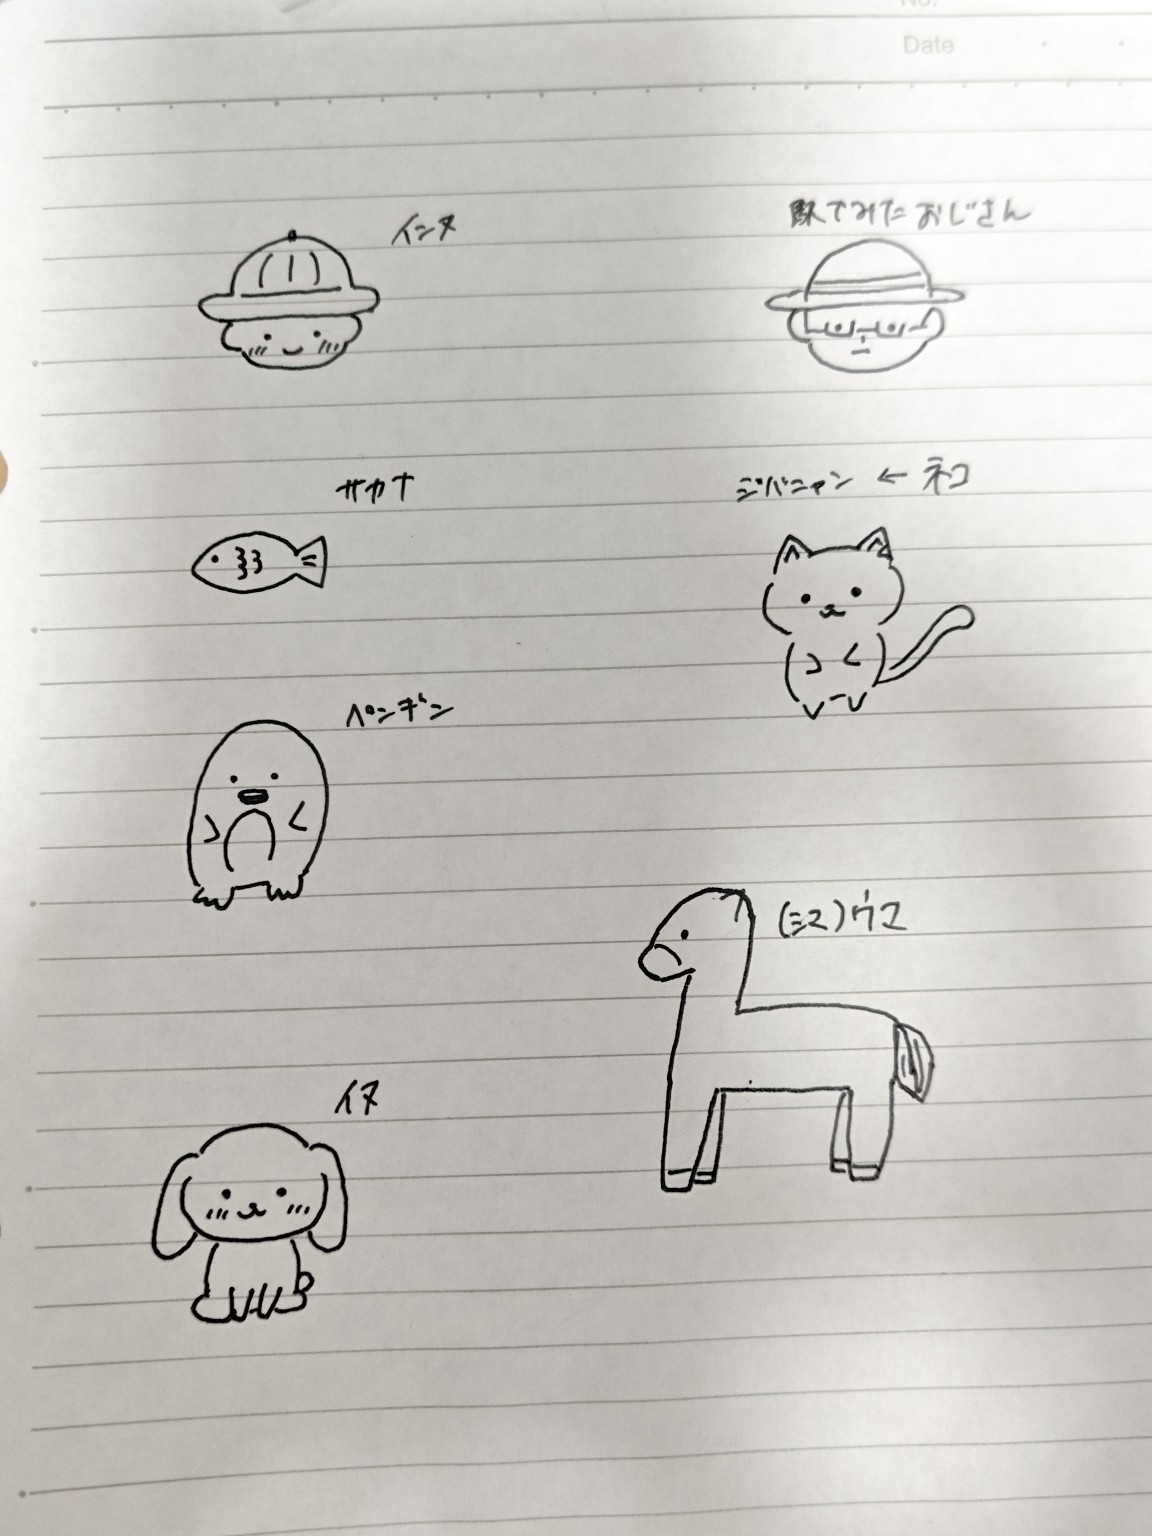 No.
Date
インヌ
駅でみたおじさん
サカナ
ジバニャン ← ネコ
ペンギン
(ミス)ウマ
イヌ